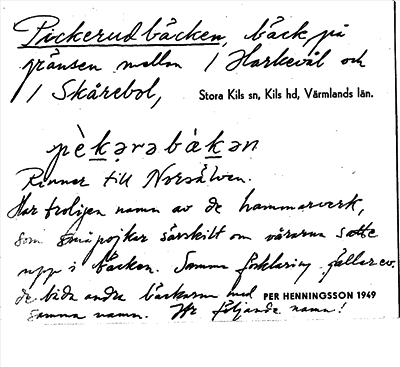 Pickerudbäcken, bäck på
gränsen mellan 1 Harkeväl och
1 Skårebol, Stora Kils sn, Kils hd, Värmlands län.
pèkərəbàkən
Rinner till Norsälven.
Har troligen namn av de hammarverk,
som småpojkar särskilt om vårarna satte
upp i bäcken. Samma förklaring gäller ev.
de båda andra bäckarna med PER HENNINGSSON 1949
samma namn. Se följande namn!